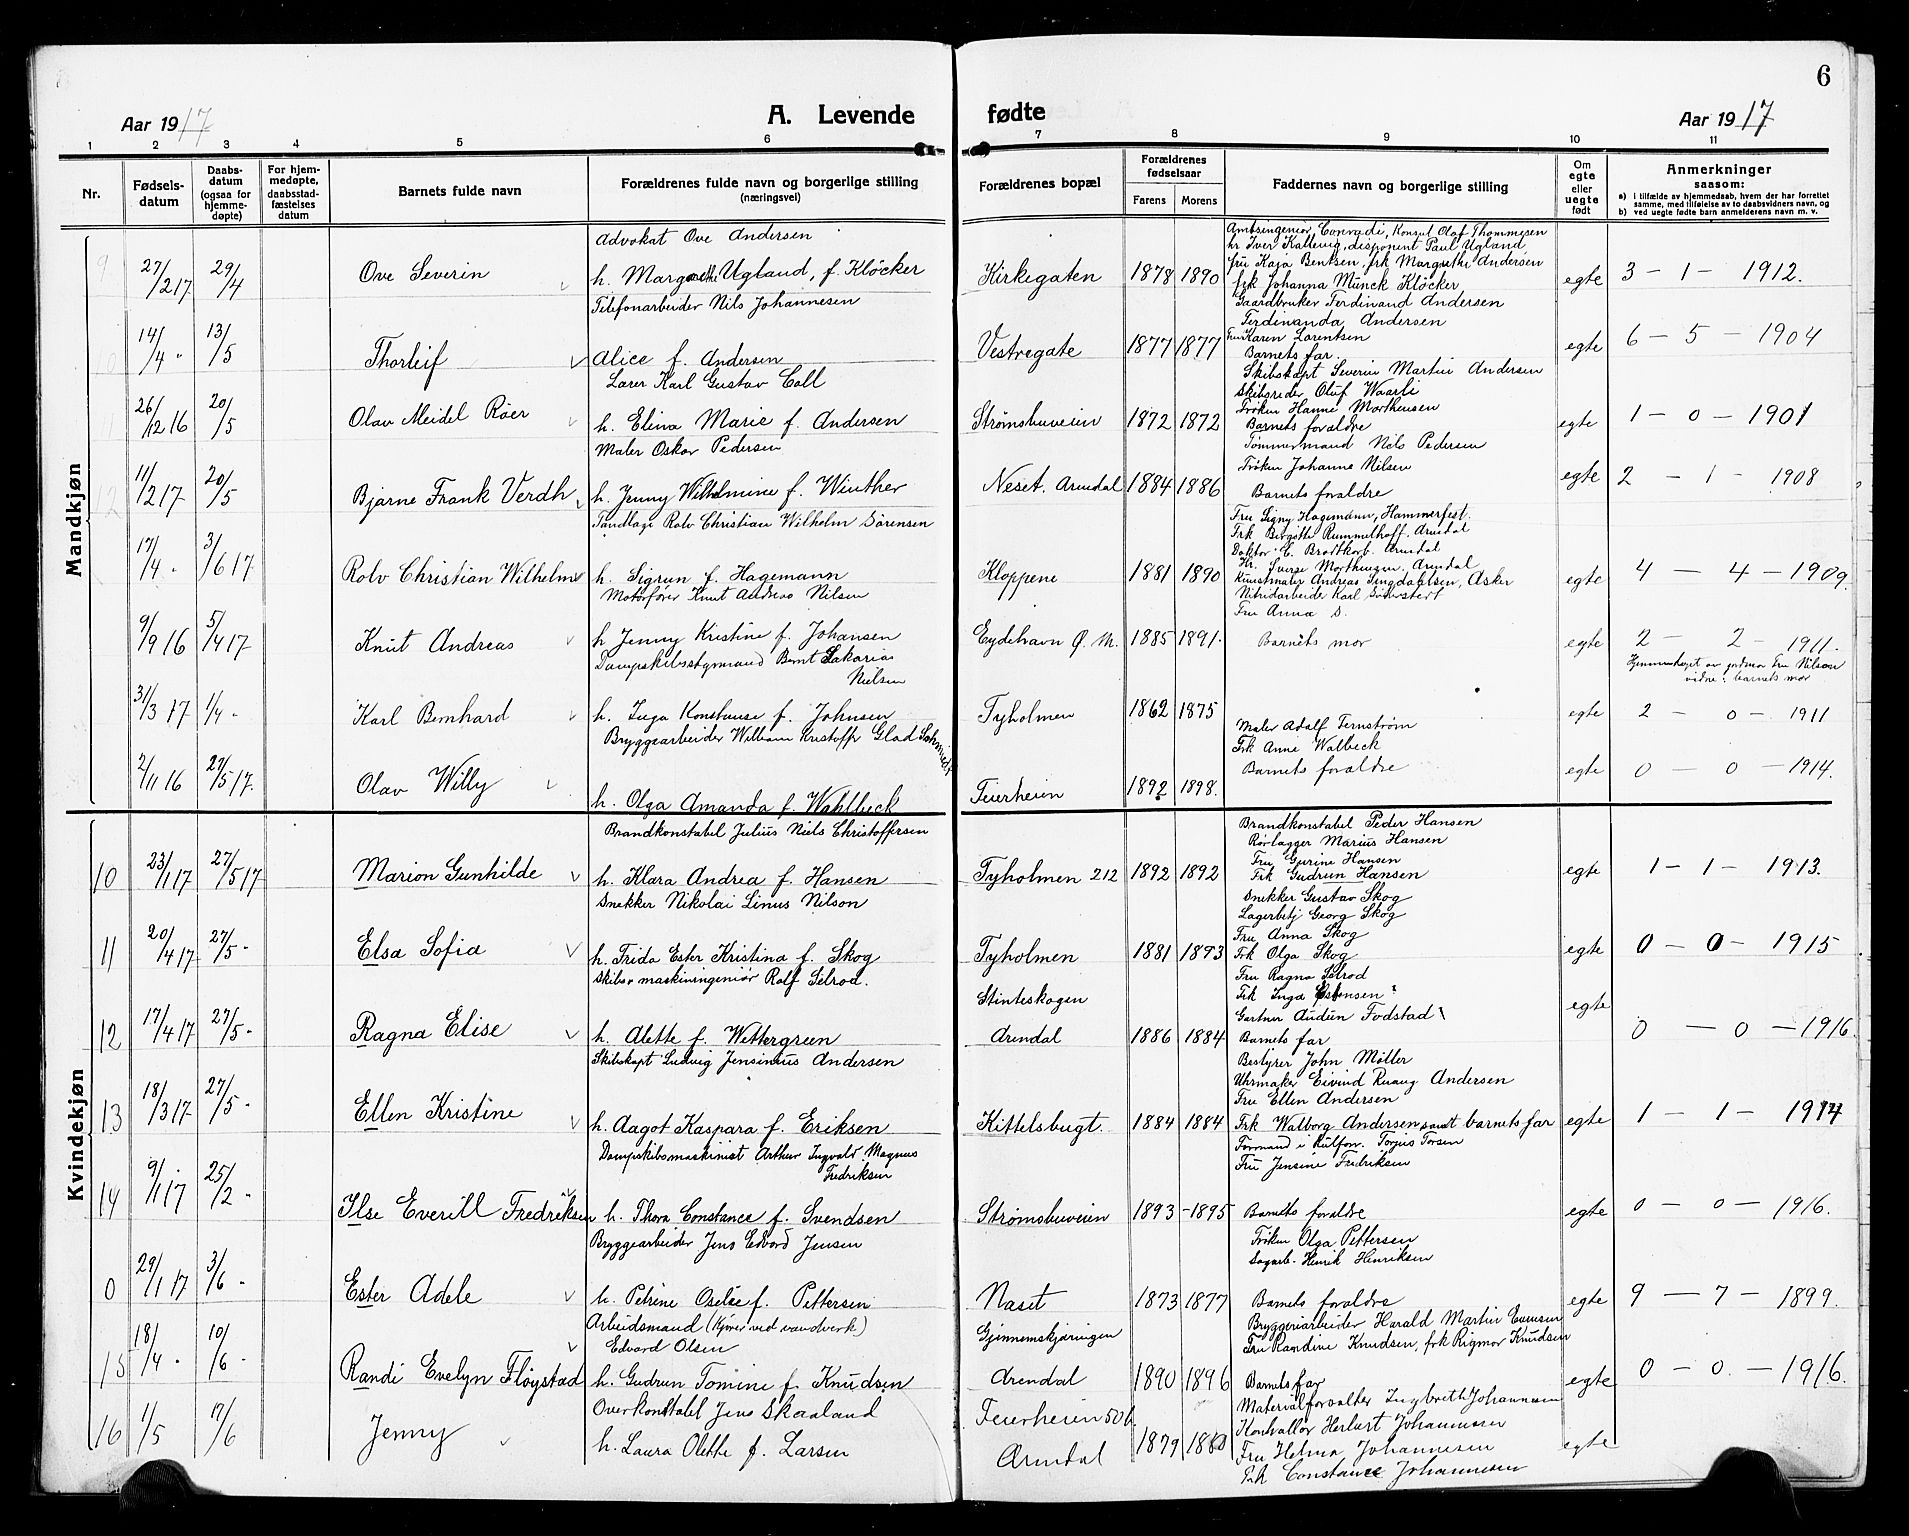 6
Aar 1917
A. Levende fødte
Aar 1917
1 2 3 4 5 6 7 8 9 10 11
Nr.
Fødsels-
datum
Daabs-
datum
(ogsaa for
hjemme-
døpte)
For hjem-
medøpte,
daabsstad-
fæstelses
datum
Barnets fulde navn
Forældrenes fulde navn og borgerlige stilling
(næringsvei)
Forældrenes bopæl
Forældrenes
fødselsaar
Farens Morens
Faddernes navn og borgerlige stilling
Om
egte
eller
uegte
født
Anmerkninger
saasom:
a) i tilfælde av hjemmedaab, hvem der har forrettet
samme, med tilføielse av to daabsvidners navn, og
b) ved uegte fødte barn anmelderens navn m. v.
Mandkjøn
9 27/2 17 29/4 Ove Severin
Advokat Ove Andersen
h. Margrethe Ugland, f. Kløcker
Kirkegaten 1878 1890
Amtsingeniør Conradi, Konsul Olaf Thommesen
hr Iver Kallevig, disponent Paul Ugland
fru Kaja Bentsen, frk Margrethe Andersen
frk Johanna Münck Kløcker
egte 3 - 1 - 1912.
10 14/4 " 13/5 Thorleif
Telefonarbeider Nils Johannesen
Alice f. Andersen
Vestregate 1877 1877
Gaardbruker Ferdinand Andersen
Ferdinanda Andersen
Fru Karen Larentsen
Barnets far.
egte 6 - 5 - 1904
11 26/12 16 20/5 Olav Meidel Röer
Lærer Karl Gustav Coll
h. Elina Marie f. Andersen
Strømsbuveien 1872 1872
Skibskapt Severin Martin Andersen
Skibsreder Oluf Waarli
Frøken Hanne Morthensen
Barnets forældre
egte 1 - 0 - 1901
12 11/2 17 20/5 Bjarne Frank Verdh
Maler Oskar Pedersen
h. Jenny Wilhelmine f. Winther
Neset. Arendal 1884 1886
Tømmermand Nils Pedersen
Frøken Johanne Nilsen
Barnets forældre
egte 2 - 1 - 1908
17/4 " 3/6 17 Rolv Christian Wilhelm
Tandlæge Rolv Christian Wilhelm Sørensen
h. Sigrun f. Hagemann
Kloppene 1881 1890
Fru Signy Hagemann, Hammerfest.
Frk Birgitte Rummelhoff. Arendal
Doktor E. Brodtkorb. Arendal
Hr. Sverre Morthensen. Arendal
Kunstmaler Andreas Singdahlsen, Asker
egte 4 - 4 - 1909.
9/9 16 5/4 17 Knut Andreas
Motorfører Knut Andreas Nilsen
h Jenny Kristine f. Johansen
Eydehavn Ø. M. 1885 1891.
Nitridarbeide Karl Söderstedt
Fru Anna S.
Barnets mor
egte 2 - 2 - 1911.
Hjemmedøpt av jordmor Fru Nilson
vidne: barnets mor
31/3 17 1/4 - Karl Bernhard
Dampskibsstyrmand Bernt Zakarias
Nielsen
h. Inga Konstanse f. Johnsen
Tyholmen 1862 1875
egte 2 - 0 - 1911
2/11 16 27/5 17. Olav Willy
Bryggearbeider William Kristoffer Glad Schmidt
h. Olga Amanda f. Wahlbeck
Feierheien 1892 1898.
Maler Adolf Fernstrøm
Frk Anne Walbeck
Barnets forældre
egte 0 - 0 - 1914.
Kvindekjøn
10 23/1 17 27/5 17 Marion Gunhilde
Brandkonstabel Julius Niels Christoffersen
h. Klara Andrea f. Hansen
Tyholmen 212 1892 1892
Brandkonstabel Peder Hansen
Rørlægger Marius Hansen
Fru Gurine Hansen
Frk Gudrun Hansen
egte 1 - 1 - 1913.
11 20/4 17 27/5 - Elsa Sofia
Snekker Nikolai Linus Nilson
h. Frida Ester Kristina f. Skog
Tyholmen 1881 1893
Snekker Gustav Skog
Lagerbetj Georg Skog
Fru Anna Skog
Frk Olga Skog
egte 0 - 0 - 1915
12 17/4 17 27/5 - Ragna Elise
Skibs & maskiningeniør Rolf Selrod.
h. Alette f. Wettergreen
Stinteskogen
Arendal 1886 1884
Fru Ragna Selrod
Frk Inga Østensen
Gartner Audun Fodstad
Barnets far
egte 0 - 0 - 1916.
13 18/3 17 27/5 - Ellen Kristine
Skibskapt Ludvig Jensinius Andersen
h. Aagot Kaspara f. Eriksen
Kittelsbugt. 1884 1884
Bestyrer John Møller
Uhrmaker Eivind Ruang Andersen
Fru Ellen Andersen
Frk Walborg Andersen samt barnets far
egte 1 - 1 - 1914
14 9/1 17 25/2 - Ilse Everill Fredriksen
Dampskibsmaskinist Arthur Ingvald Magnus
Fredriksen
h. Thora Constance f. Svendsen
Strømsbuveien 1893 - 1895
Formand i Kulforr. Torjus Torsen
Fru Jensine Fredriksen
Barnets forældre
egte 0 - 0 - 1916.
0 29/1 17 3/6 - Ester Adele
Bryggearbeider Jens Edvard Jensen
h. Petrine Oselse f. Pettersen
Næset 1873 1877
Frøken Olga Pettersen
Sagarb. Henrik Henriksen
Barnets forældre
egte 9 - 7 - 1899.
15 18/4 " 10/6 - Randi Evelyn Fløystad
Arbeidsmand (Kjører ved vandverk)
Edvard Olsen
h. Gudrun Tomine f. Knudsen
Gjennemskjæringen
Arendal 1890 1896
Bryggeriarbeider Harald Martin Evensen
Fru Randine Knudsen, frk Rigmor Knudsen
Barnets far
egte 0 - 0 - 1916.
16 1/5 17/6 Jenny
Overkonstabel Jens Skaaland
h. Laura Olette f. Larsen
Feierheien 50 b.
Arendal 1879 1880
Materialforvalter Ingbreth Johannessen
Herbert Johannessen
Fru Helma Johannesen
Frk Constance Johannesen
egte